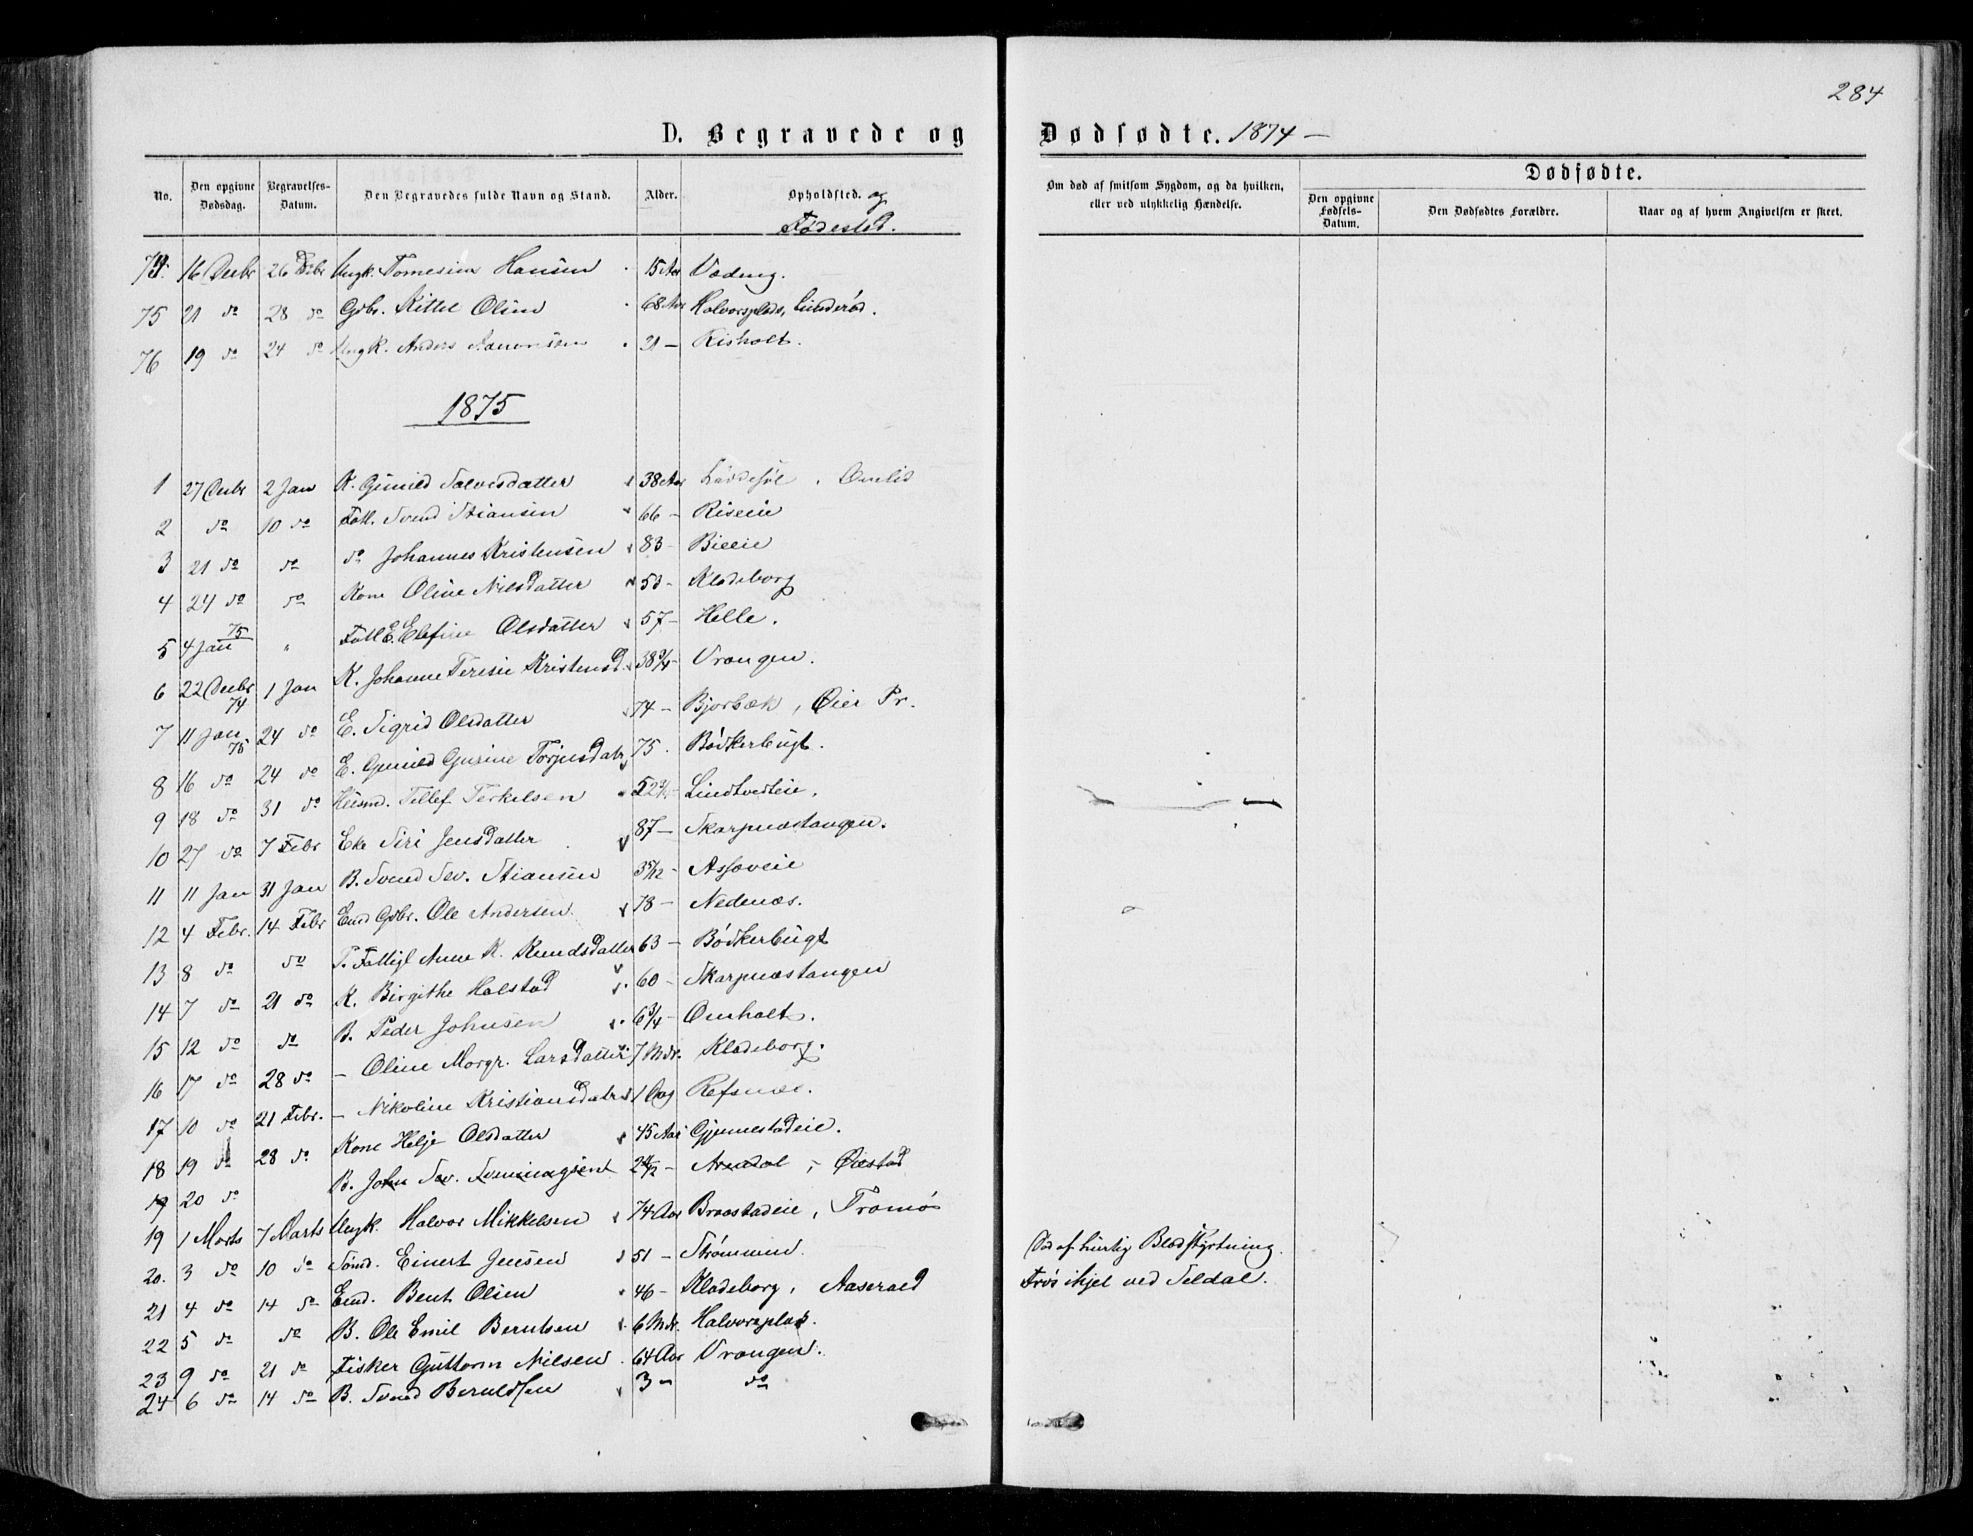 284
D. Begravede og Dødfødte. 1874 —
No. | Den opgivne Dødsdag. | Begravelses-Datum. | Den Begravedes fulde Navn og Stand. | Alder. | Opholdsted. og Fødested. | Om død af smitsom Sygdom, og da hvilken, eller ved ulykkelig Hændelse. | Dødfødte. | Den opgivne Fødsels-Datum. | Den Dødfødtes Forældre. | Naar og af hvem Angivelsen er skeet.
74. 16 Decbr 26 Decbr Ungk. Tomesius Hansen 15 Aar Vadeng.
75 21 do 28 do Gdbr. Kittel Olsen 68 Aar Halvorsplads, Lunderød.
76 19 do 24 do Ungk. Anders 21 — Risholt.
1875
1 27 Decbr 2 Jan K. Gunild Salvesdatter 38 Aar Løddesøl , Omlid
2 do 10 do Fatt. Svend Stiansen 66 — Riseeie
3 21 do do do Johannes Kristensen 83 — Bieeie
4 24 do do Kone Oline Nilsdatter 53 — Kladeborg
5 4 Jan 75 " Fattl. E. Elefine Olsdatter 57 — Helle.
6 22 Decbr 74 1 Jan K. Johanne Teresie Kristensd. 38 3/4 Vrangen.
7 11 Jan 75 24 do E. Sigrid Olsdatter 74 — Bjorbæk, Øier Pr.
8 16 do 24 do E. Gunild Gurine Torjusdatr 75. Bødkerbugt.
9 18 do 31 do Husmd. Tellef Terkelsen 52 Lindtvedteie.
10 27 do 7 Febr Eke Siri Jensdatter 87 — Skarpnæstangen.
11 11 Jan 31 Jan B. Svend Sev. Stiansen 3 5/12 — Assaveie
12 4 Febr. 14 Febr Emd Gdbr. Ole Andersen 78 — Nedenæs.
13 8 do do P. Fattigl Anne K. Knudsdatter 63 — Bødkerbugt
14 7 do 21 do K. Birgithe Halstad 60 — Skarpnæstangen
15 12 do do B. Peder Johnsen 6 3/4 — Omholt.
16 17 do 28 do — Oline Margr. Larsdatter 7 Mdr. Kladeborg.
17 10 do 21 Febr. — Nikoline Kristiansdatr 1 Dag Refsnæs.
18 19 do 28 do Kone Helje Olsdatter 45 Aar Gjennestadeie.
19 20 do B. John Sev. 2 — Arendal, Øiestad
19 1 Marts 7 Marts Ungk. Halvor Mikkelsen 74 Aar Braastadeie, Tromø
20. 3 do 10 do Sømd. Einert Jensen 51 — Strømmen. Død af hurtig Blodstyrtning.
21 4 do 14 do Emd. Bent Olsen 46 — Kladeborg, Aaserald Frøs ihjel ved Seldal.
22 5 do do B. Ole Emil Berntsen 6 Mdr. Halvorsplads.
23 9 do 21 do Fisker Guttorm Nilsen 64 Aar Vrangen.
24 6 do 14 do B. Svend Beruldsen 3 — do